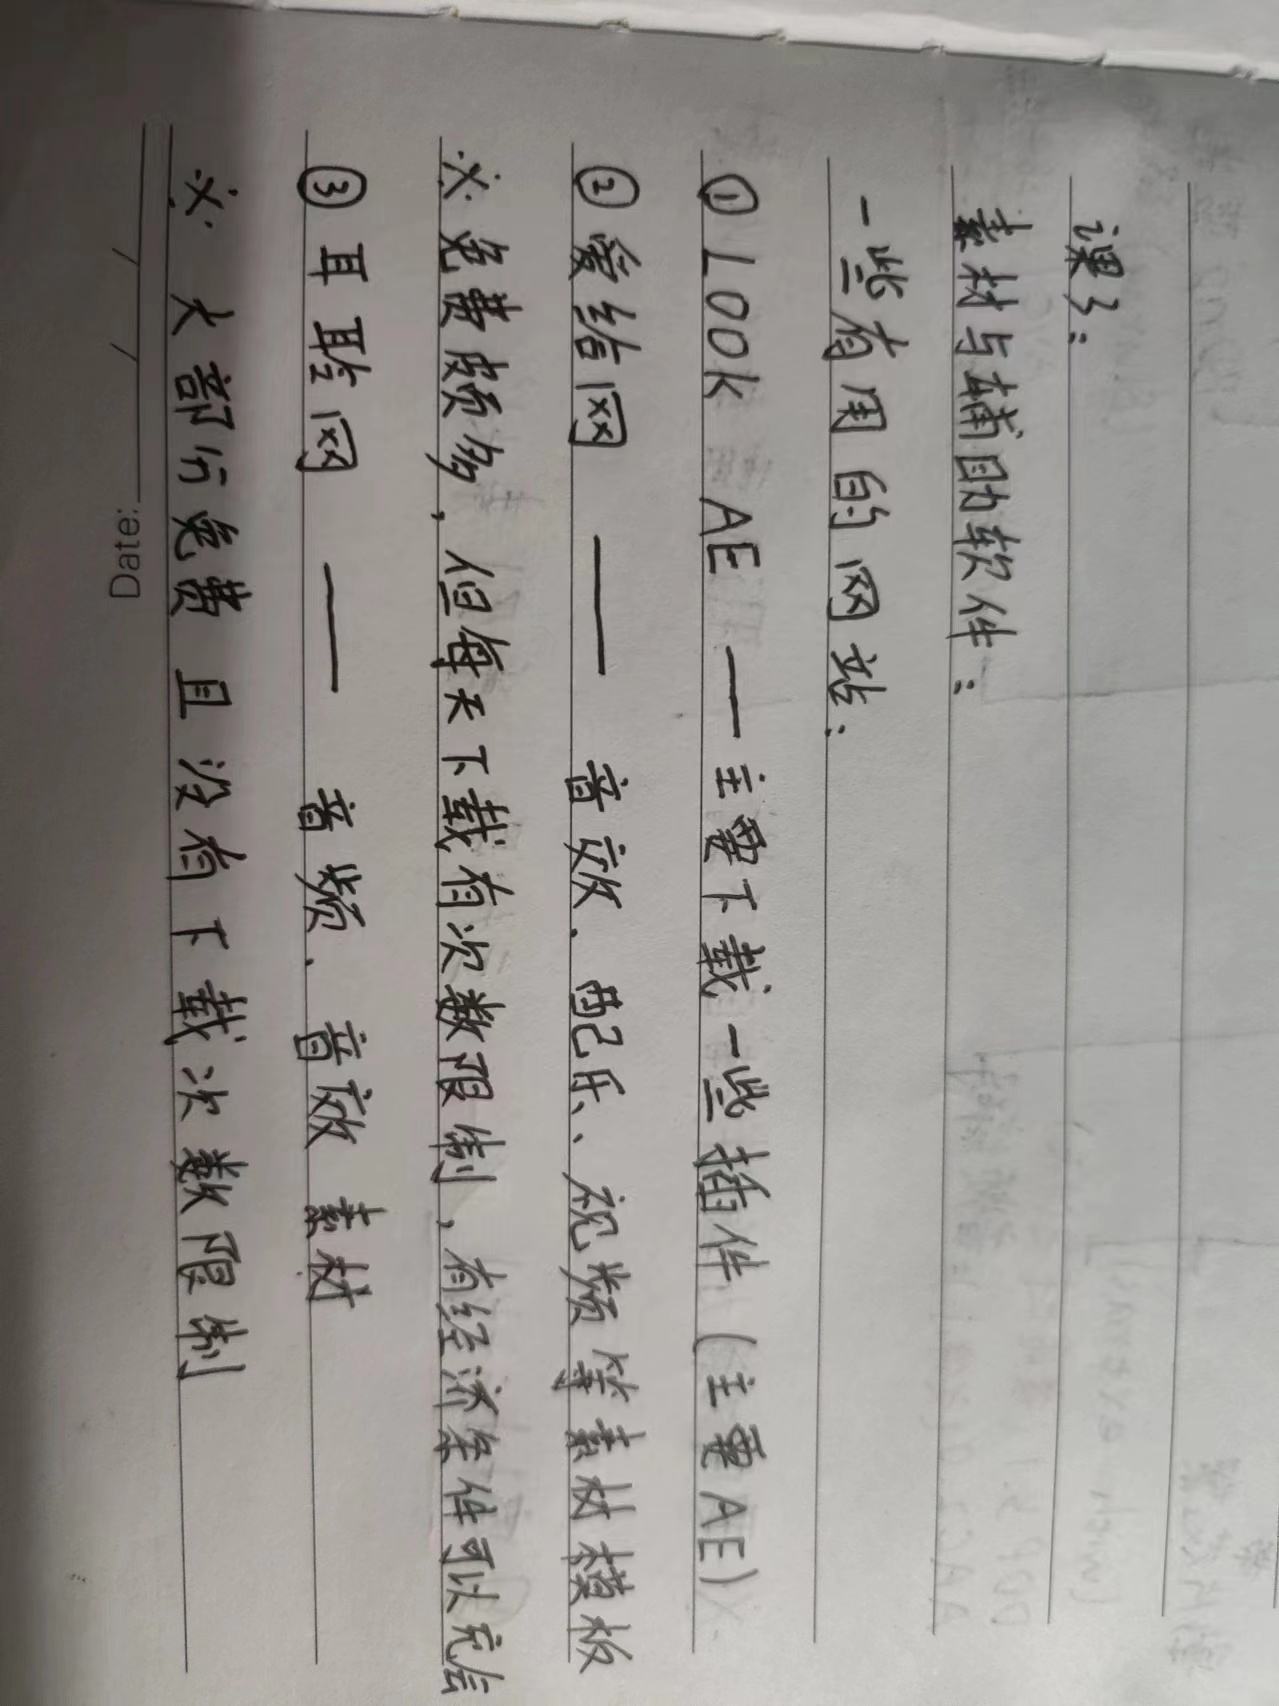 课3:
素材与辅助软件:
一些有用的网站:
① LOOK AE — 主要下载一些插件(主要AE)
② 爱给网 — 音效、配乐、视频等素材模板
※免费颇多,但每天下载有次数限制,有经济条件可以充会
③ 耳聆网 — 音频、音效 素材
※ 大部分免费且没有下载次数限制
Date: / /